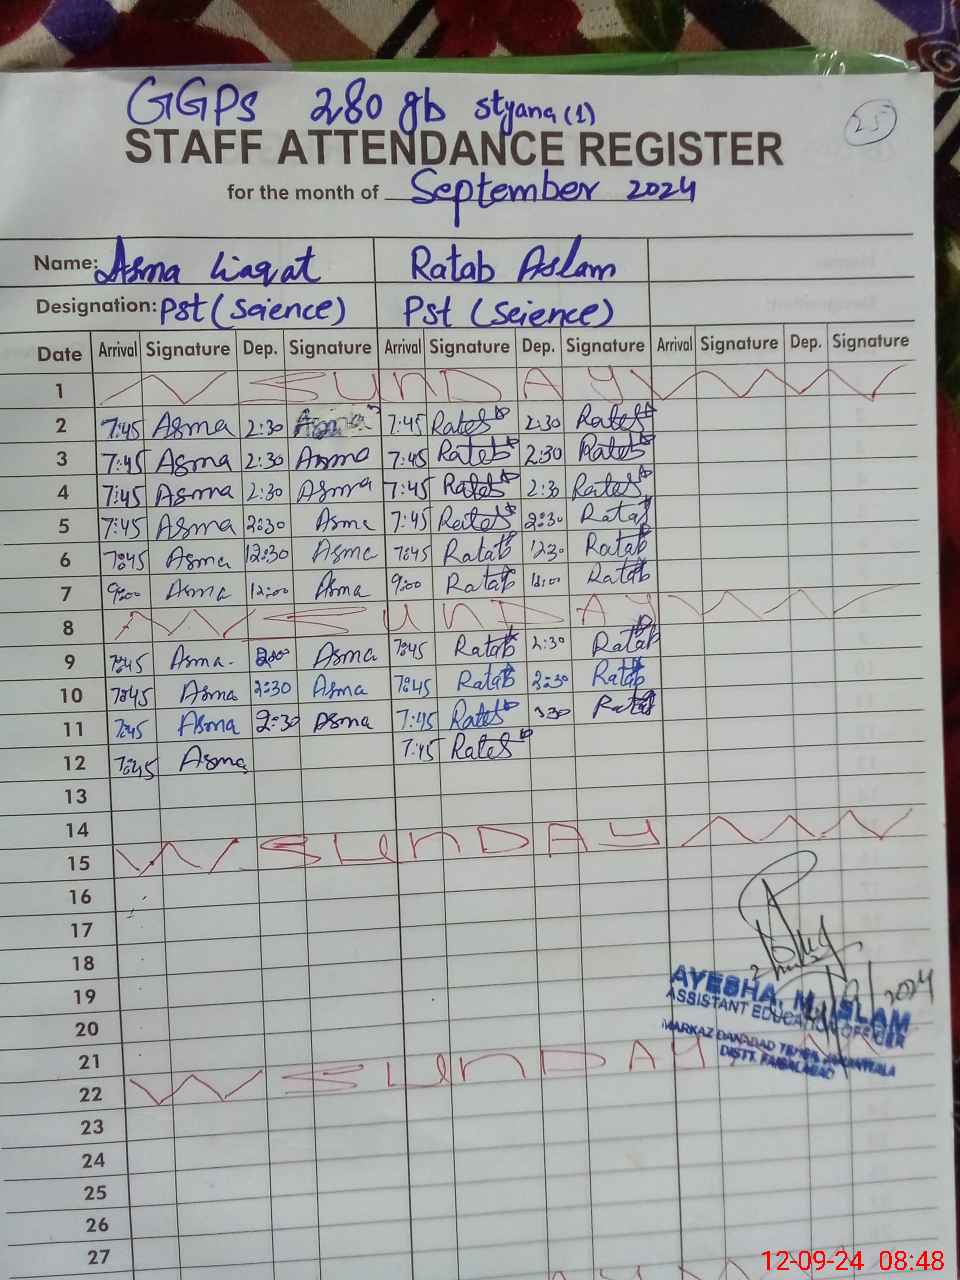 GGPS 280 gb styana (1)
25
STAFF ATTENDANCE REGISTER
for the month of September 2024
Name: Asma Liaqat Ratab Aslam
Designation: Pst (Science) Pst (Science)
Date Arrival Signature Dep. Signature Arrival Signature Dep. Signature Arrival Signature Dep. Signature
1 SUNDAY
2 7:45 Asma 2:30 Asma 7:45 Ratab 2:30 Ratab
3 7:45 Asma 2:30 Asma 7:45 Ratab 2:30 Ratab
4 7:45 Asma 2:30 Asma 7:45 Ratab 2:30 Ratab
5 7:45 Asma 2:30 Asma 7:45 Ratab 2:30 Ratab
6 7:45 Asma 12:30 Asma 7:45 Ratab 1230 Ratab
7 9:00 Asma 12:00 Asma 9:00 Ratab Ratab
8 SUNDAY
9 7:45 Asma Asma 7:45 Ratab 2:30 Ratab
10 7:45 Asma 2:30 Asma 7:45 Ratab 2:30 Ratab
11 7:45 Asma 2:30 Asma 7:45 Ratab Ratab
12 7:45 Asma 7:45 Ratab
13
14
15 SUNDAY
16
17
18
19
20
21
22 SUNDAY
23
24
25
26
27
2024
AYESHA ISLAM
ASSISTANT EDUCATION OFFICER
MARKAZ
DISTT. FAISALABAD
12-09-24 08:48